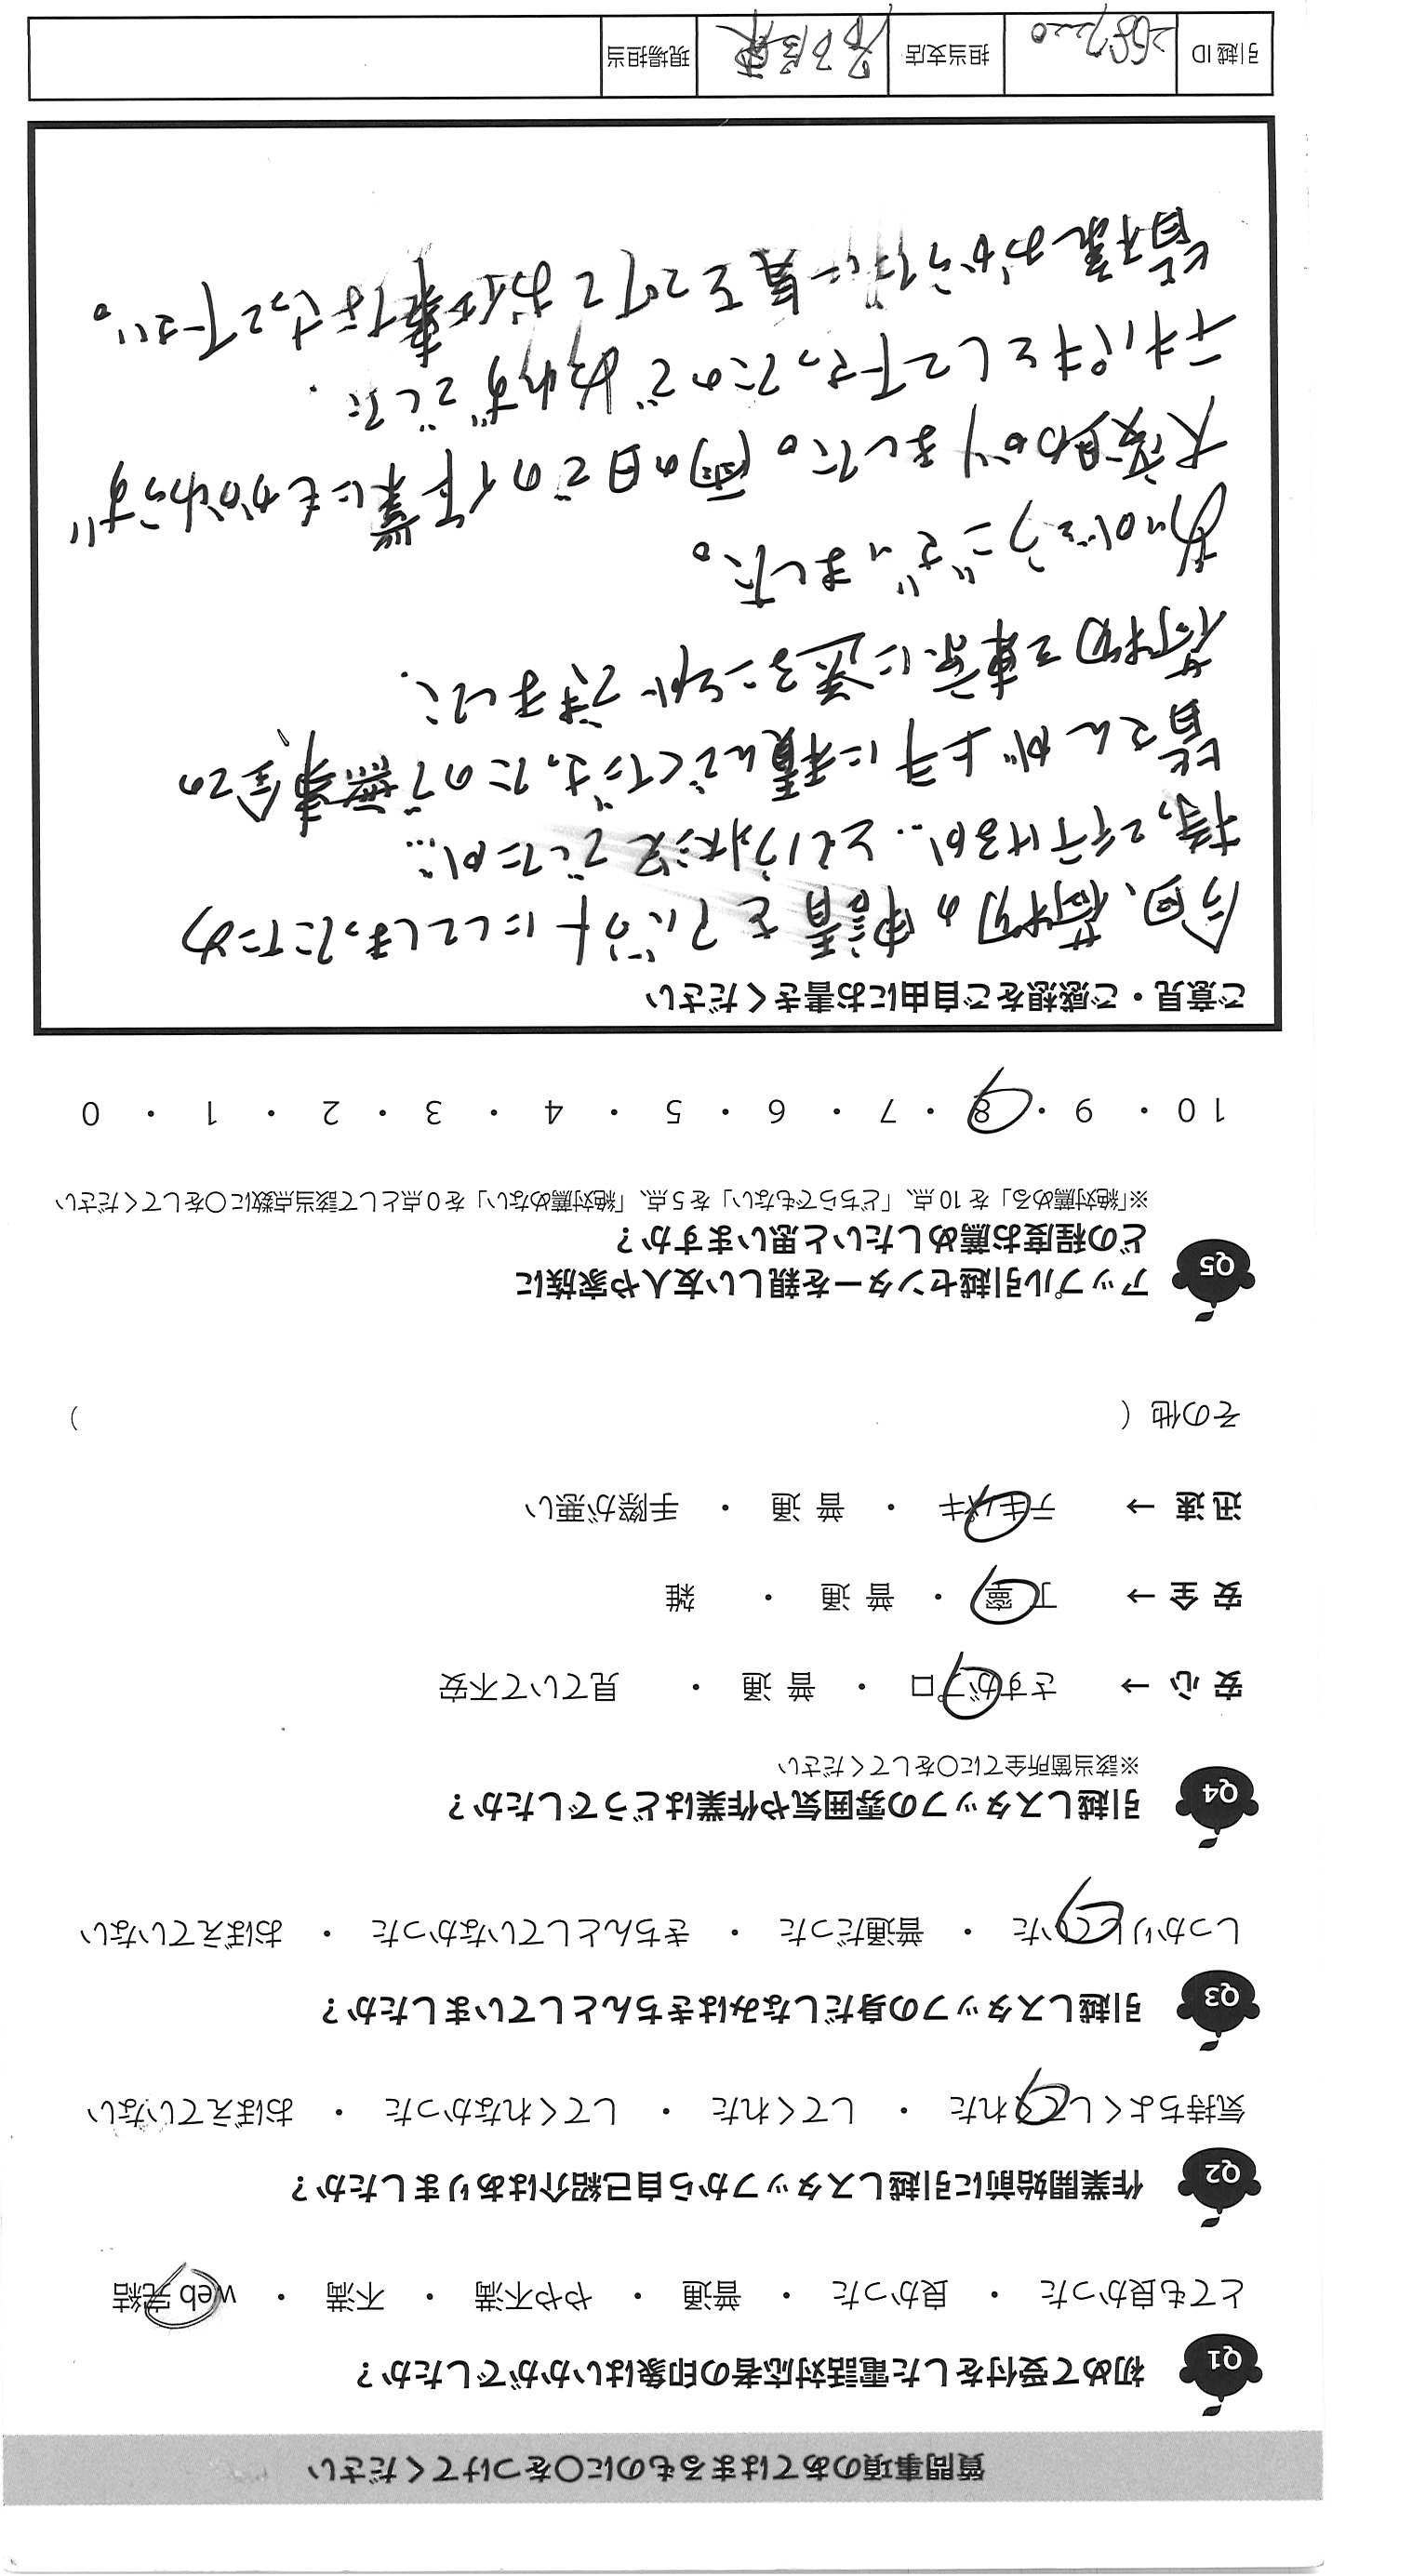 質問事項のあてはまるものに○をつけてください
Q1 初めて受付をした電話対応者の印象はいかがでしたか？
とても良かった ・ 良かった ・ 普通 ・ やや不満 ・ 不満 ・ web 完結
Q2 作業開始前に引越しスタッフから自己紹介はありましたか？
気持ちよくしてくれた ・ してくれた ・ してくれなかった ・ おぼえていない
Q3 引越しスタッフの身だしなみはきちんとしていましたか？
しっかりしていた ・ 普通だった ・ きちんとしていなかった ・ おぼえていない
Q4 引越しスタッフの雰囲気や作業はどうでしたか？
※該当箇所全てに○をしてください
安 心 → さすがプロ ・ 普 通 ・ 見ていて不安
安 全 → 丁 寧 ・ 普 通 ・ 雑
迅 速 → テキパキ ・ 普 通 ・ 手際が悪い
その他（ ）
Q5 アップル引越センターを親しい友人や家族に
どの程度お薦めしたいと思いますか？
※「絶対薦める」を 10 点、「どちらでもない」を 5 点、「絶対薦めない」を 0 点として該当点数に○をしてください
10 ・ 9 ・ 8 ・ 7 ・ 6 ・ 5 ・ 4 ・ 3 ・ 2 ・ 1 ・ 0
ご意見・ご感想をご自由にお書きください
今回、荷物の申請をアバウトにしてしまったため
持って行けるか…という状況でしたが…
皆さんが上手に積んでくださったので無事全ての
荷物を東京に送ることができました。
ありがとうございました。
大変助かりました。雨の日での作業にもかかわらず
テキパキとして下さったので助かりました。
皆様おからだに気をつけてお仕事なさって下さい。
引越 ID 2687220 担当支店 現場担当